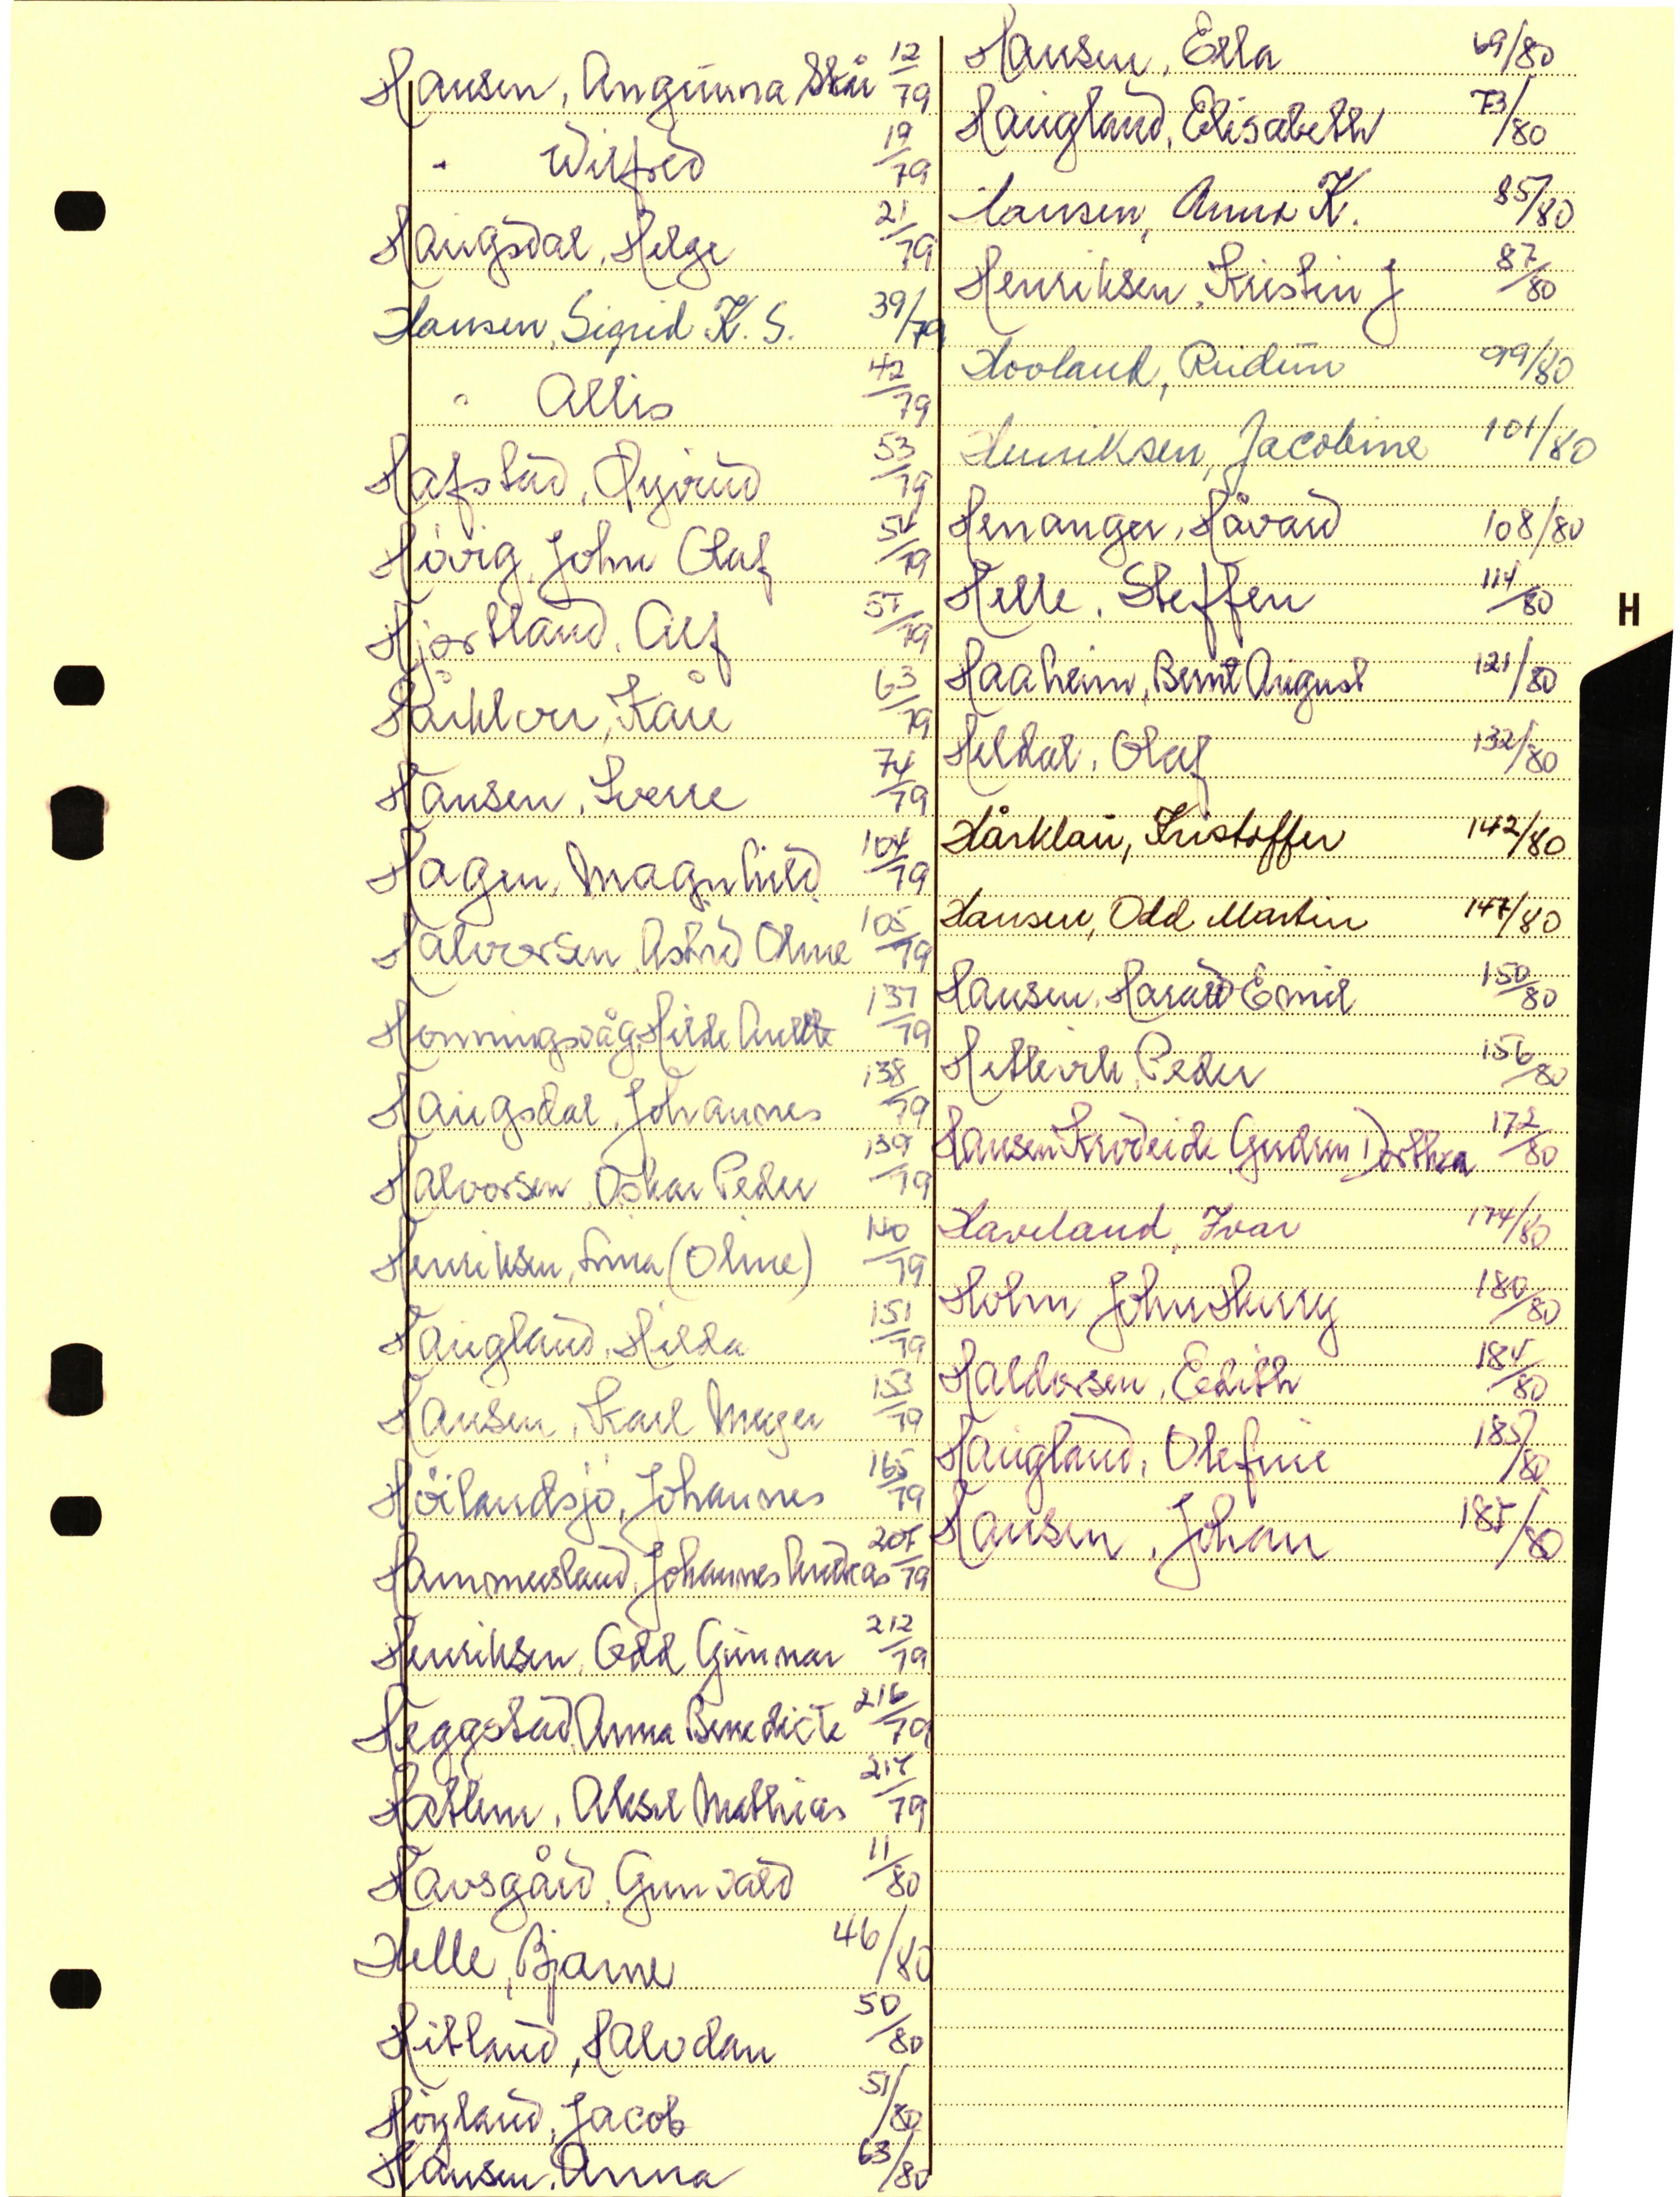 Hansen, Angunna Skår 12/79
" Wilfred 19/79
Haugsdal, Helge 21/79
Hansen, Sigrid K. S. 39/79
" Allis 42/79
Hafstad, Øyvind 53/79
Hövig, John Olaf 54/79
Hjortland, Alf 57/79
Hårklau, Kåre 63/79
Hansen, Sverre 74/79
Hagen, Magnhild 104/79
Halvorsen, Astrid Oline 105/79
Honningsvåg, Hilde Anette 137/79
Haugsdal, Johannes 138/79
Halvorsen, Oskar Peder 139/79
Henriksen, Lina (Oline) 140/79
Haugland, Hilda 151/79
Hansen, Karl Meyer 153/79
Höilandsjö, Johannes 165/79
Hammersland, Johannes Andreas 207/79
Henriksen, Odd Gunnar 212/79
Heggstad, Anna Benedicte 216/79
Hatlem, Aksel Mathias 217/79
Havsgård, Gunvald 11/80
Helle, Bjarne 46/80
Hitland, Halvdan 50/80
Höyland, Jacob 51/80
Hansen, Anna 63/80
Hansen, Erla 69/80
Haugland, Elisabeth 73/80
Hansen, Anna K. 85/80
Henriksen, Kristin J 87/80
Hovland, Reidun 99/80
Henriksen, Jacobine 101/80
Henanger, Håvard 108/80
Helle, Steffen 114/80
Haaheim, Bernt August 121/80
Heldal, Olaf 132/80
Hårklau, Kristoffer 142/80
Hansen, Odd Martin 147/80
Hansen, Harald Emil 150/80
Hetlevik, Peder 156/80
Hansen Krodeide Gudrun Dorthea 172/80
Haveland, Ivar 174/80
Holm John Henry 180/80
Haldorsen, Edith 184/80
Haugland, Olefine 185/80
Hansen, Johan 185/80
H